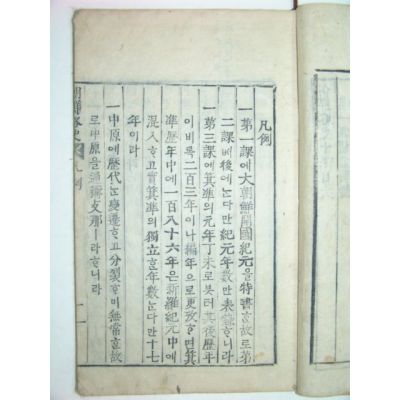 凡例
一第一課에大朝鮮開國紀元을特書ᄒᆞᆫ故로第
二課ᄇᆡ後에ᄂᆞᆫ다만紀元年數만表益ᄒᆞ니라
一第三課에箕準의元年丁未로붓터其後歷年
이비록二百三年이나編年으로更攷ᄒᆞ면箕
準歷年中에一百八十六年은新羅紀元中에
混入ᄒᆞ고實箕準의獨立ᄒᆞᆫ年數ᄂᆞᆫ다만十七
年이라
一中原에歷代ᄂᆞᆫ變遷ᄒᆞ고分裂ᄒᆞ미無常ᄒᆞᆫ故
로中原을通稱支那ㅣ라ᄒᆞ니라
朝鮮畧史 凡例